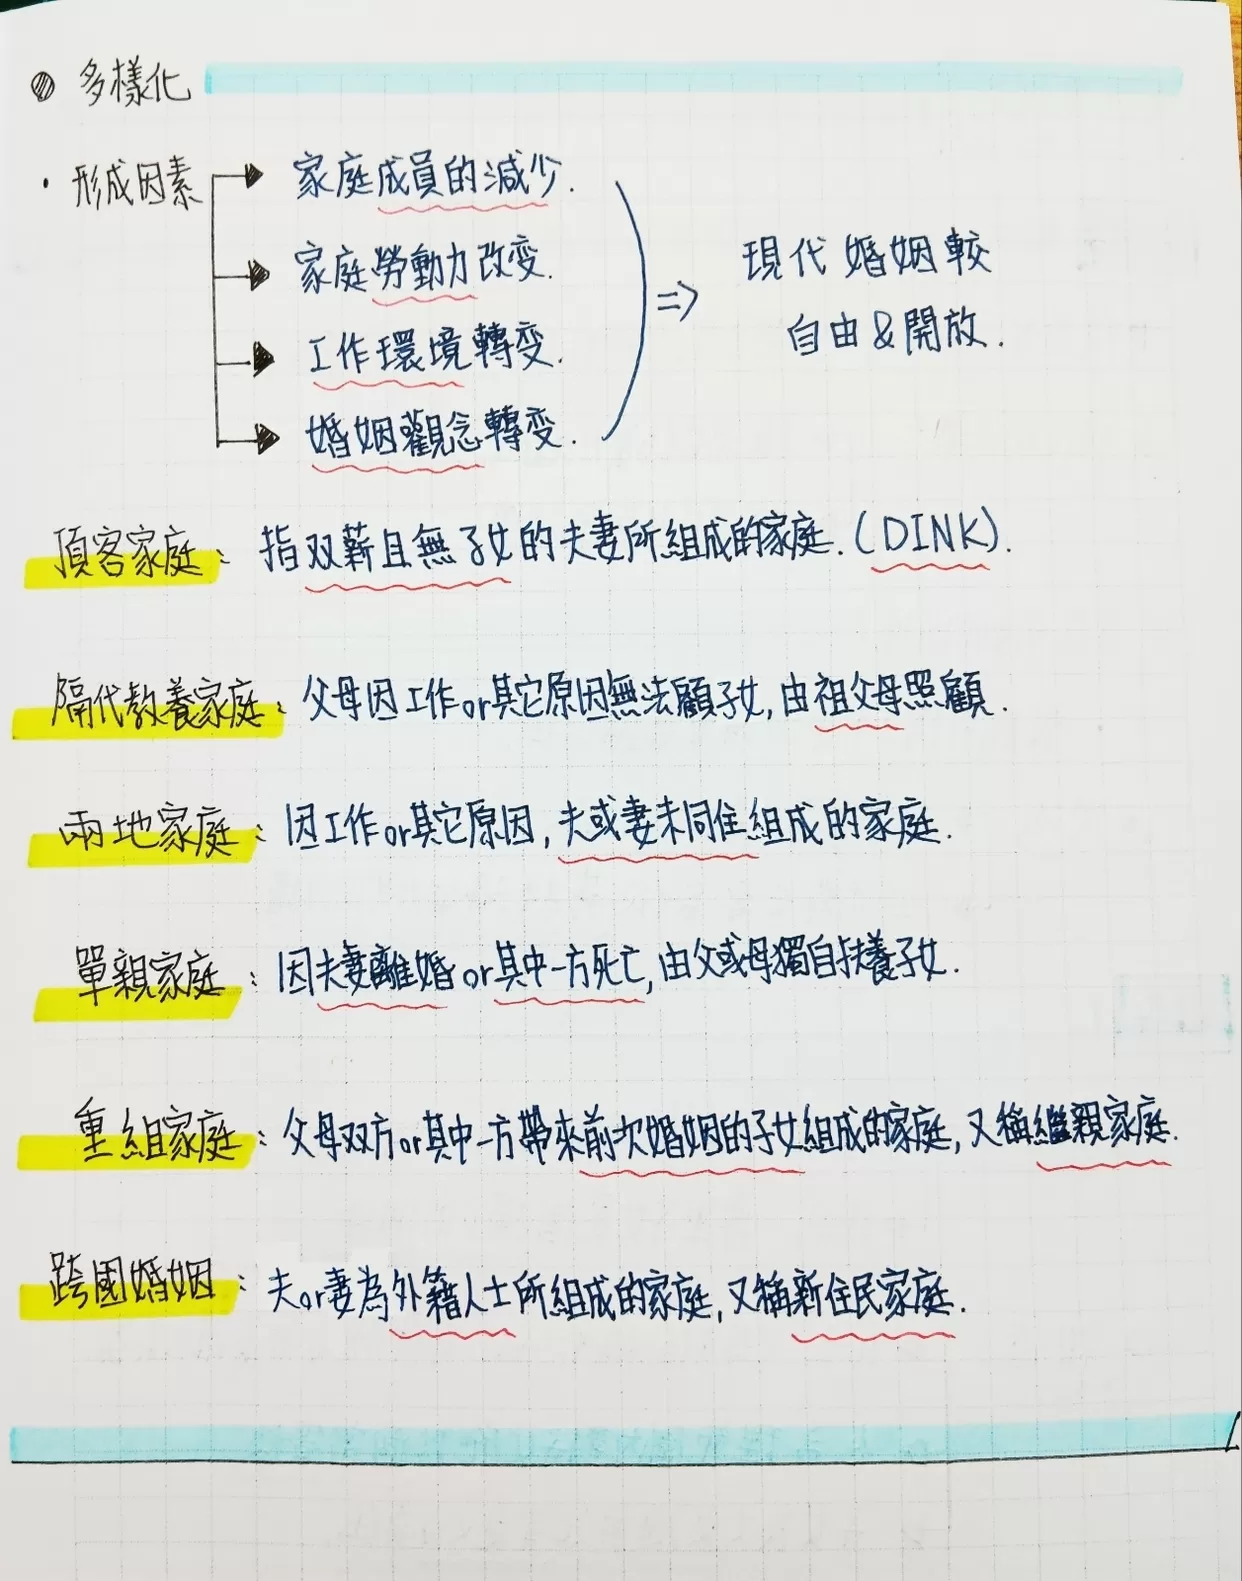 多樣化
· 形成因素
家庭成員的減少.
家庭勞動力改变.
工作環境轉变.
婚姻觀念轉变.
⇒ 現代婚姻較
自由&開放.
頂客家庭: 指双薪且無子女的夫妻所組成的家庭.(DINK).
隔代教養家庭: 父母因工作or其它原因無法顧子女,由祖父母照顧.
兩地家庭: 因工作or其它原因,夫或妻未同住組成的家庭.
單親家庭: 因夫妻離婚or其中一方死亡,由父或母獨自扶養子女.
重組家庭: 父母双方or其中一方帶來前次婚姻的子女組成的家庭,又稱繼親家庭.
跨國婚姻: 夫or妻為外籍人士所組成的家庭,又稱新住民家庭.